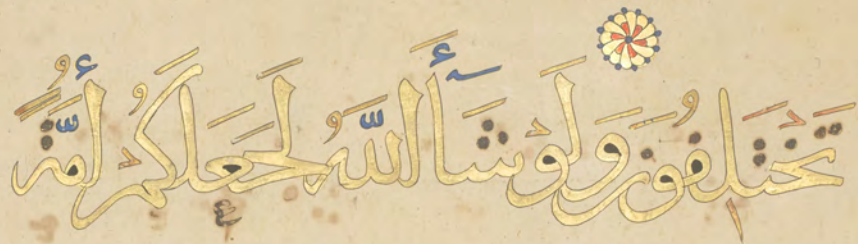 تَخْتَلِفُونَ وَلَوْ شَاءَ اللَّهُ لَجَعَلَكُمْ أُمَّةً